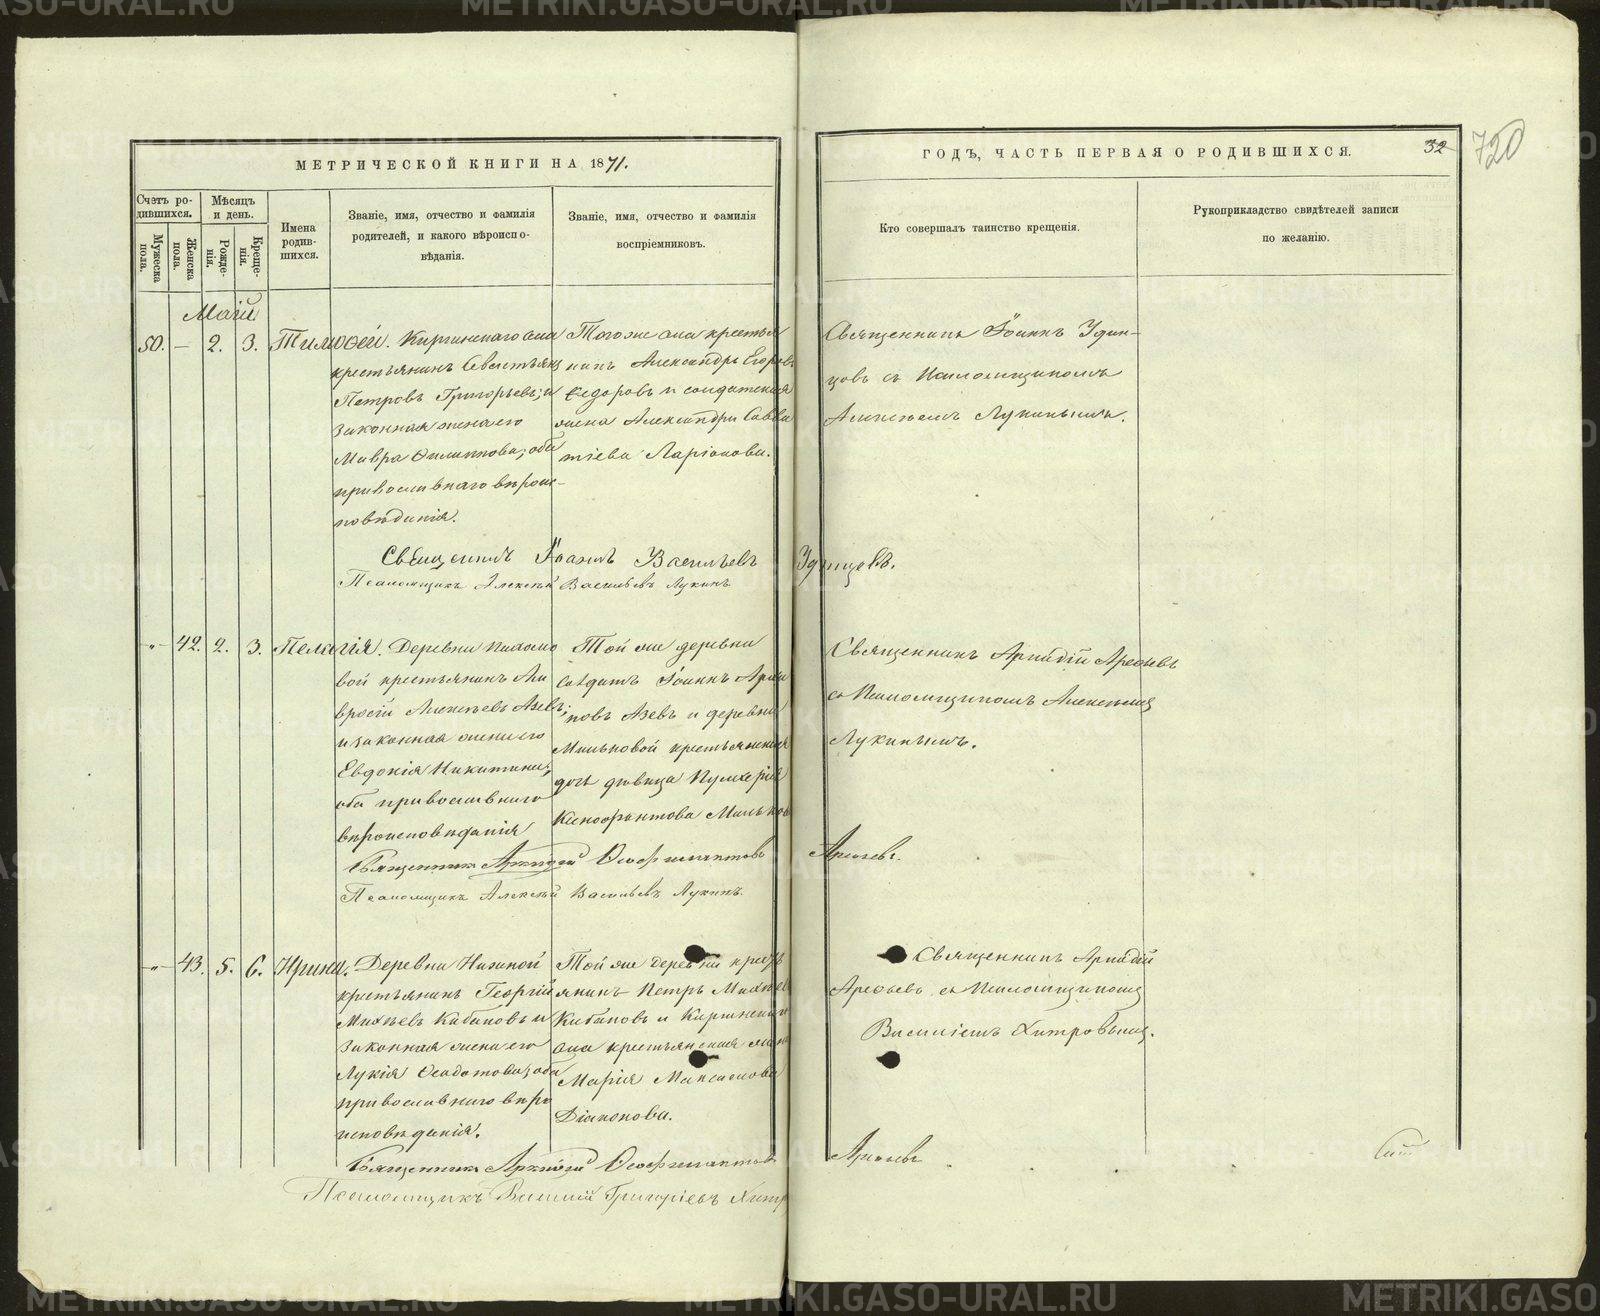 МЕТРИЧЕСКОЙ КНИГИ НА 1871.
Счетъ родившихся.
Мужеска пола.
Женска пола.
Мѣсяцъ и день.
Рожденія.
Крещенія.
Имена родившихся.
Званіе, имя, отчество и фамилія родителей, и какого вѣроисповѣданія.
Званіе, имя, отчество и фамилія воспріемниковъ.
ГОДЪ, ЧАСТЬ ПЕРВАЯ О РОДИВШИХСЯ.
32
720
Кто совершалъ таинство крещенія.
Рукоприкладство свидѣтелей записи по желанію.
Май
50. — 2. 3. Тимоѳей.
Киргинскаго села
крестьянинъ
Петровъ Григорьевъ; и
законная жена его
Мавра Филиппова; оба
православнаго вѣроис-
повѣданія.
Того же села крестья
нинъ Александръ Егоровъ
Ѳедоровъ и солдатская
жена Александра Савва
тіева Ларіонова.
Священникъ Іоаннъ Удин-
цовъ съ Псаломщикомъ
Алексѣемъ Лукинымъ.
Священникъ Іоаннъ Васильевъ Удинцевъ.
Псаломщикъ Алексѣй Васильевъ Лукинъ
42. 2. 3. Пелагія.
Деревни
вой крестьянинъ Ам
вросій Алексѣевъ Азевъ;
и законная жена его
Евдокія Никитина;
оба православнаго
вѣроисповѣданія
Той же деревни
солдатъ Іоаннъ
Азевъ и деревни
Мильковой крестьянская
дочь дѣвица Пульхерія
Ксенофонтова Мильков
Священникъ Аркадій Арефьевъ
съ Псаломщикомъ Алексѣемъ
Лукинымъ.
Священникъ Аркадій Ѳеофилактовъ Арефьевъ.
Псаломщикъ Алексѣй Васильевъ Лукинъ.
43. 5. 6. Ирина.
Деревни
крестьянинъ Георгій
Михѣевъ Кабаковъ и
законная жена его
Лукія Ѳедотова; оба
православнаго вѣро
исповѣданія.
Той же деревни кресть
янинъ Петръ Михѣев
Кабаковъ и Киргинскаго
села крестьянская жена
Марія Максимова
Діаконова.
Священникъ Аркадій
Арефьевъ съ Псаломщикомъ
Василіемъ Хитровымъ.
Священникъ Аркадій Ѳеофилактовъ Арефьевъ
Псаломщикъ Василій Григоріевъ Хитр
METRIKI.GASO-URAL.RU